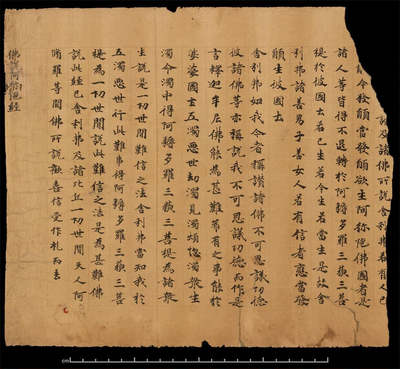 及諸佛所說舍利弗若有人已
今發願當發願欲生阿弥陀佛國者是
諸人等皆得不退轉於阿耨多羅三藐三菩
提於彼國土若已生若今生若當生是故舍
利弗諸善男子善女人若有信者應當發
願生彼國土
舍利弗如我今者稱讚諸佛不可思議功德
彼諸佛等亦稱說我不可思議功德而作是
言釋迦牟尼佛能為甚難希有之事能於
娑婆國土五濁惡世劫濁見濁煩惱濁衆生
濁命濁中得阿耨多羅三藐三菩提為諸衆
生說是一切世間難信之法舍利弗當知我於
五濁惡世行此難事得阿耨多羅三藐三菩
提為一切世間說此難信之法是為甚難佛
說此經已舍利弗及諸比丘一切世間天人阿
脩羅等聞佛所說歡喜信受作礼而去
佛說阿弥陀經
cm